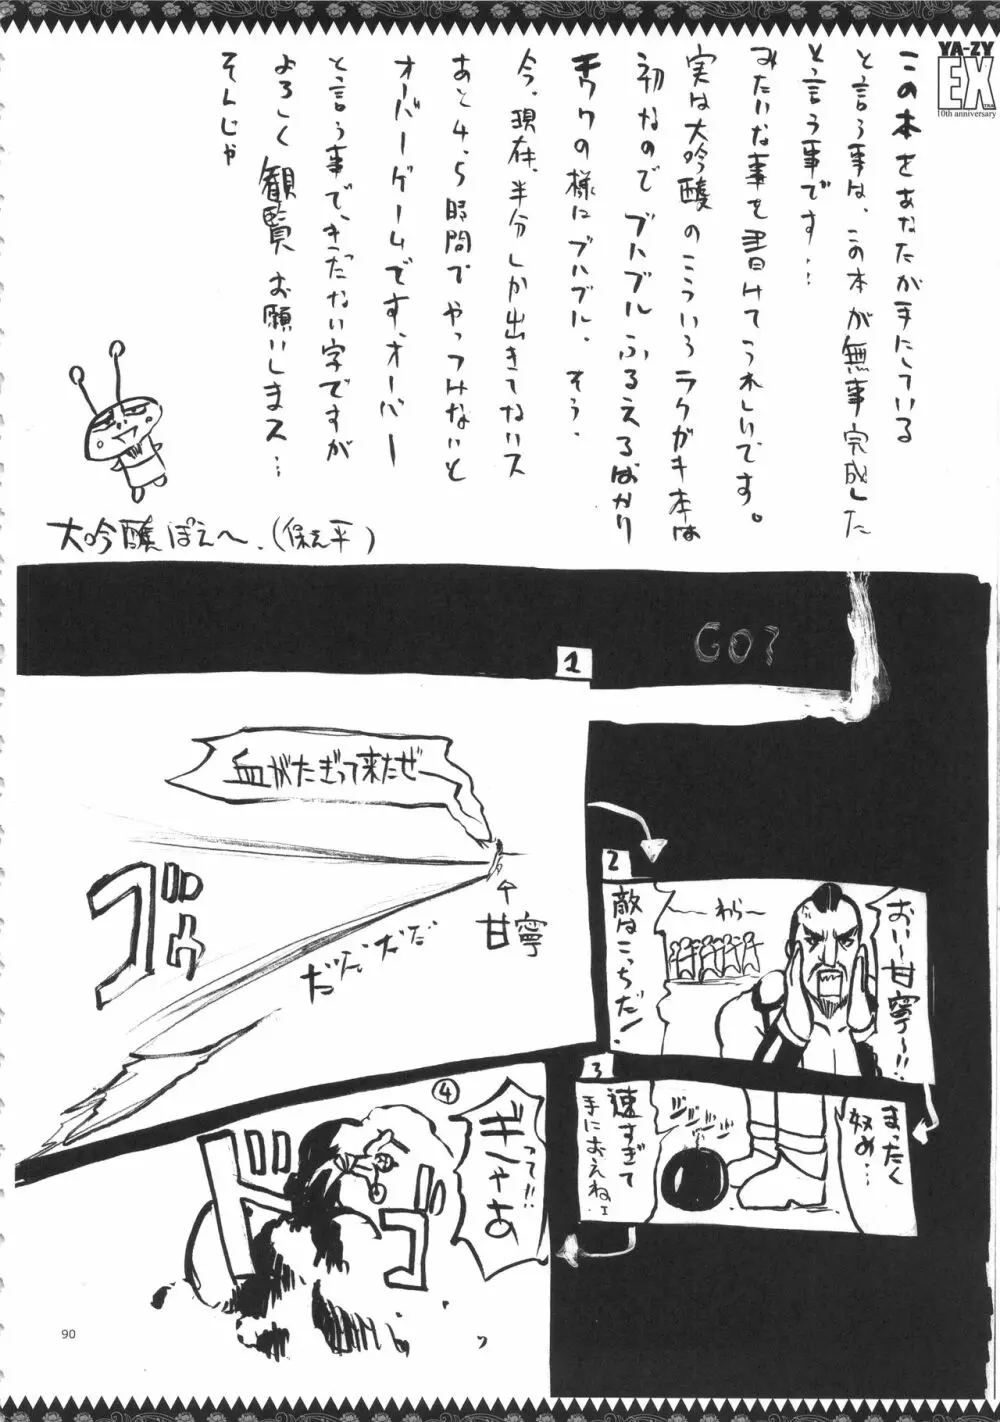 YA-ZY
EX
TRA
10th anniversary
この本をあなたが手にしている
と言う事は、この本が無事完成した
と言う事です…
みたいな事を書けてうれしいです。
実は大吟醸のこういうラクガキ本は
初なのでブルブルふるえるばかり
チワワの様にブルブル、そう、
今、現在、半分しか出きてないス
あと4、5時間でやっつけないと
オーバーゲームです、オーバー
と言う事で、きったない字ですが
よろしく観覧お願いしまス…
そんじゃ
大吟醸ぽえ〜、(保え平)
GO?
1
血がたぎって来たぜ
ゴゥ
甘寧
だだだだ
2
おい〜甘寧〜!!
わら〜
敵はこっちだ!
3
まったく
奴め…
ジジジ
速すぎて
手におえねェ
④
ぎゃあ
って!!
ドゴ
90